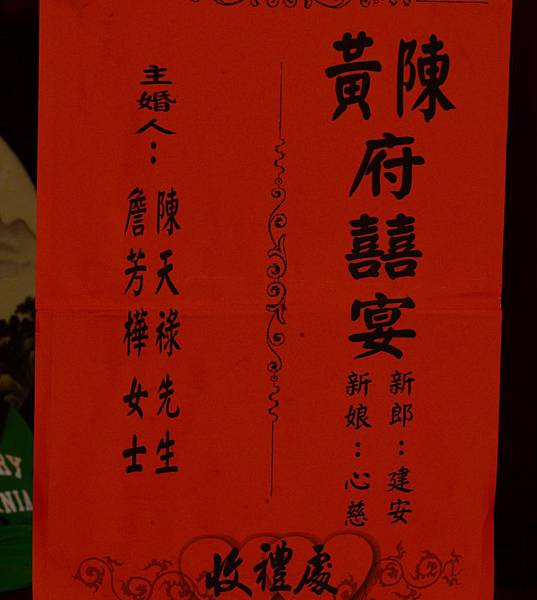 陳黃府囍宴
新郎：建安
新娘：心慈
主婚人：
陳天祿先生
詹芳樺女士
收禮處
RY
NIA